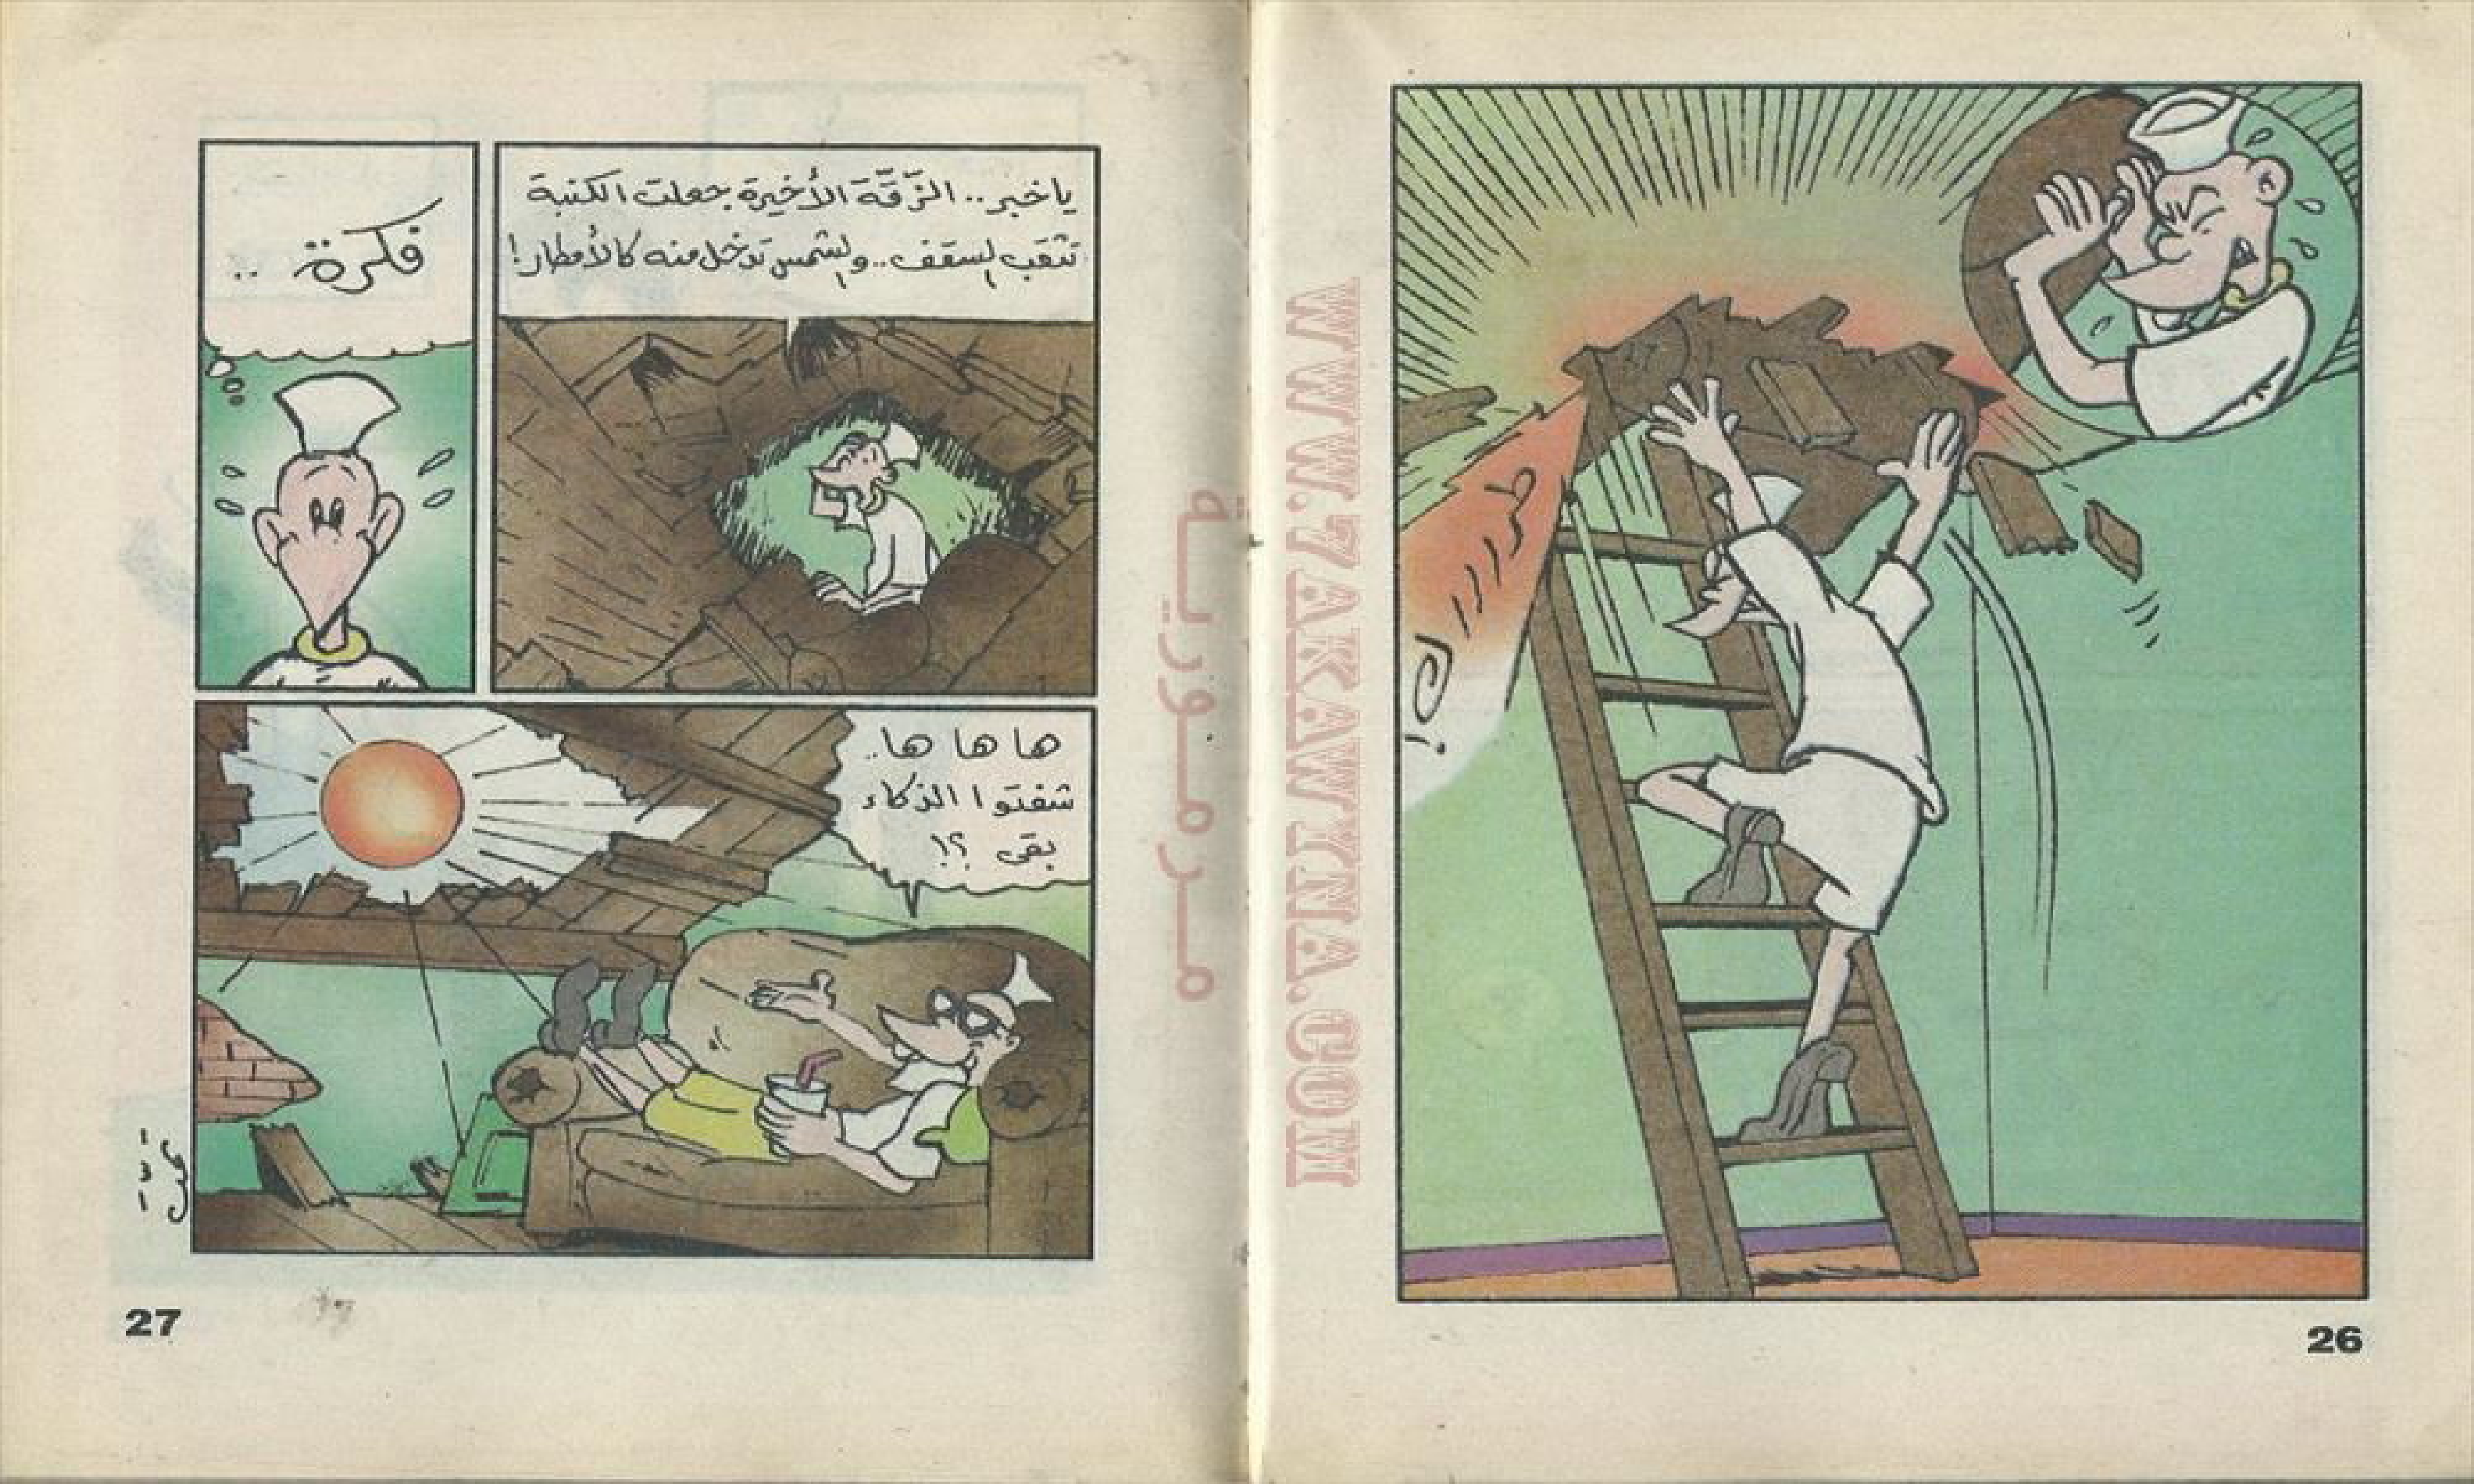 طرااااخ!
26
WWW.7AKAWINA.COM
مرمورية
ياخبر.. الزَّقَّة الأخيرة جعلت الكنبة
تثقب السقف.. والشمس تدخل منه كالأمطار!
فكرة ..
ها ها ها..
شفتوا الذكاء
بقى ؟!
27